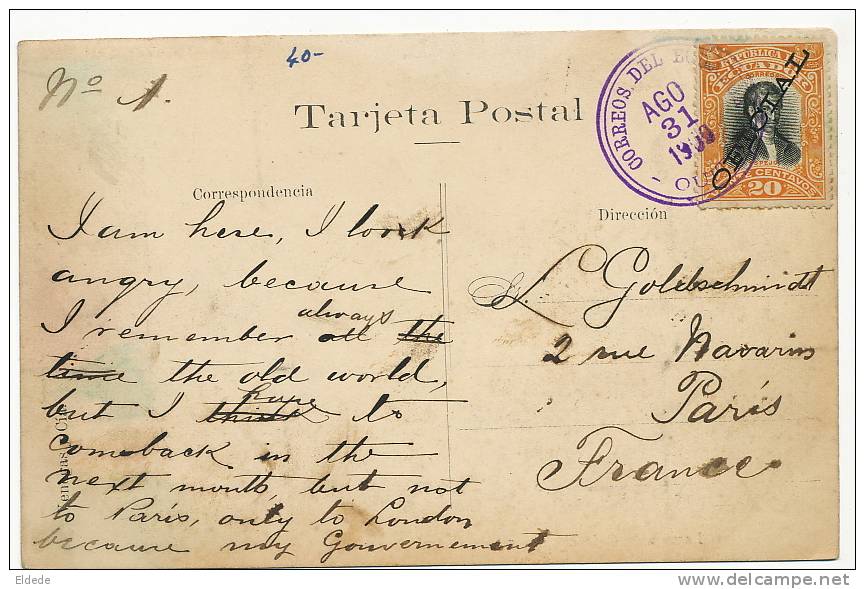 40-
No 1.
Tarjeta Postal
CORREOS DEL
AGO
31
REPÚBLICA
OFICIAL
CENTAVOS
20
Correspondencia
Dirección
I am here, I look
angry, because
always
I remember all the
time the old world,
hope
but I think to
Comeback in the
next month, but not
to París, only to London
because my Gouvernement
L. Goldschmidt
2 rue Navarin
París
France
Eldede
delcampe.net